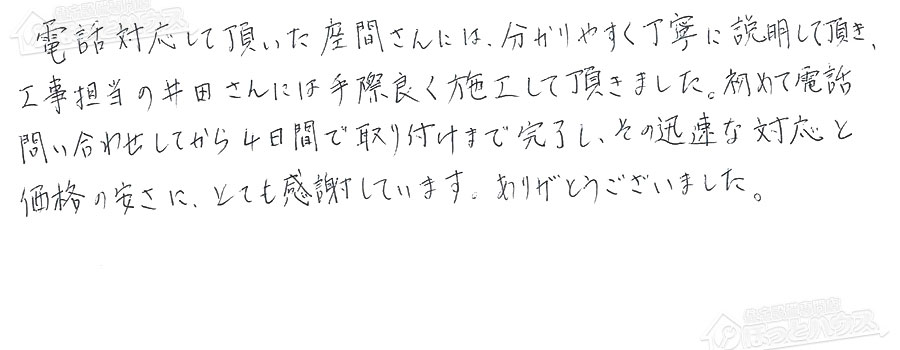 電話対応して頂いた座間さんには、分かりやすく丁寧に説明して頂き、
工事担当の井田さんには手際良く施工して頂きました。初めて電話
問い合わせしてから4日間で取り付けまで完了し、その迅速な対応と
価格の安さに、とても感謝しています。ありがとうございました。
住宅設備専門店
ほっとハウス